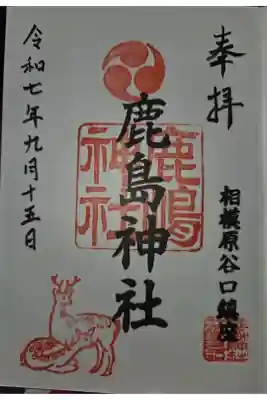 奉拝
相模原谷口鎮座
鹿島神社
鹿嶋神社
令和七年九月十五日